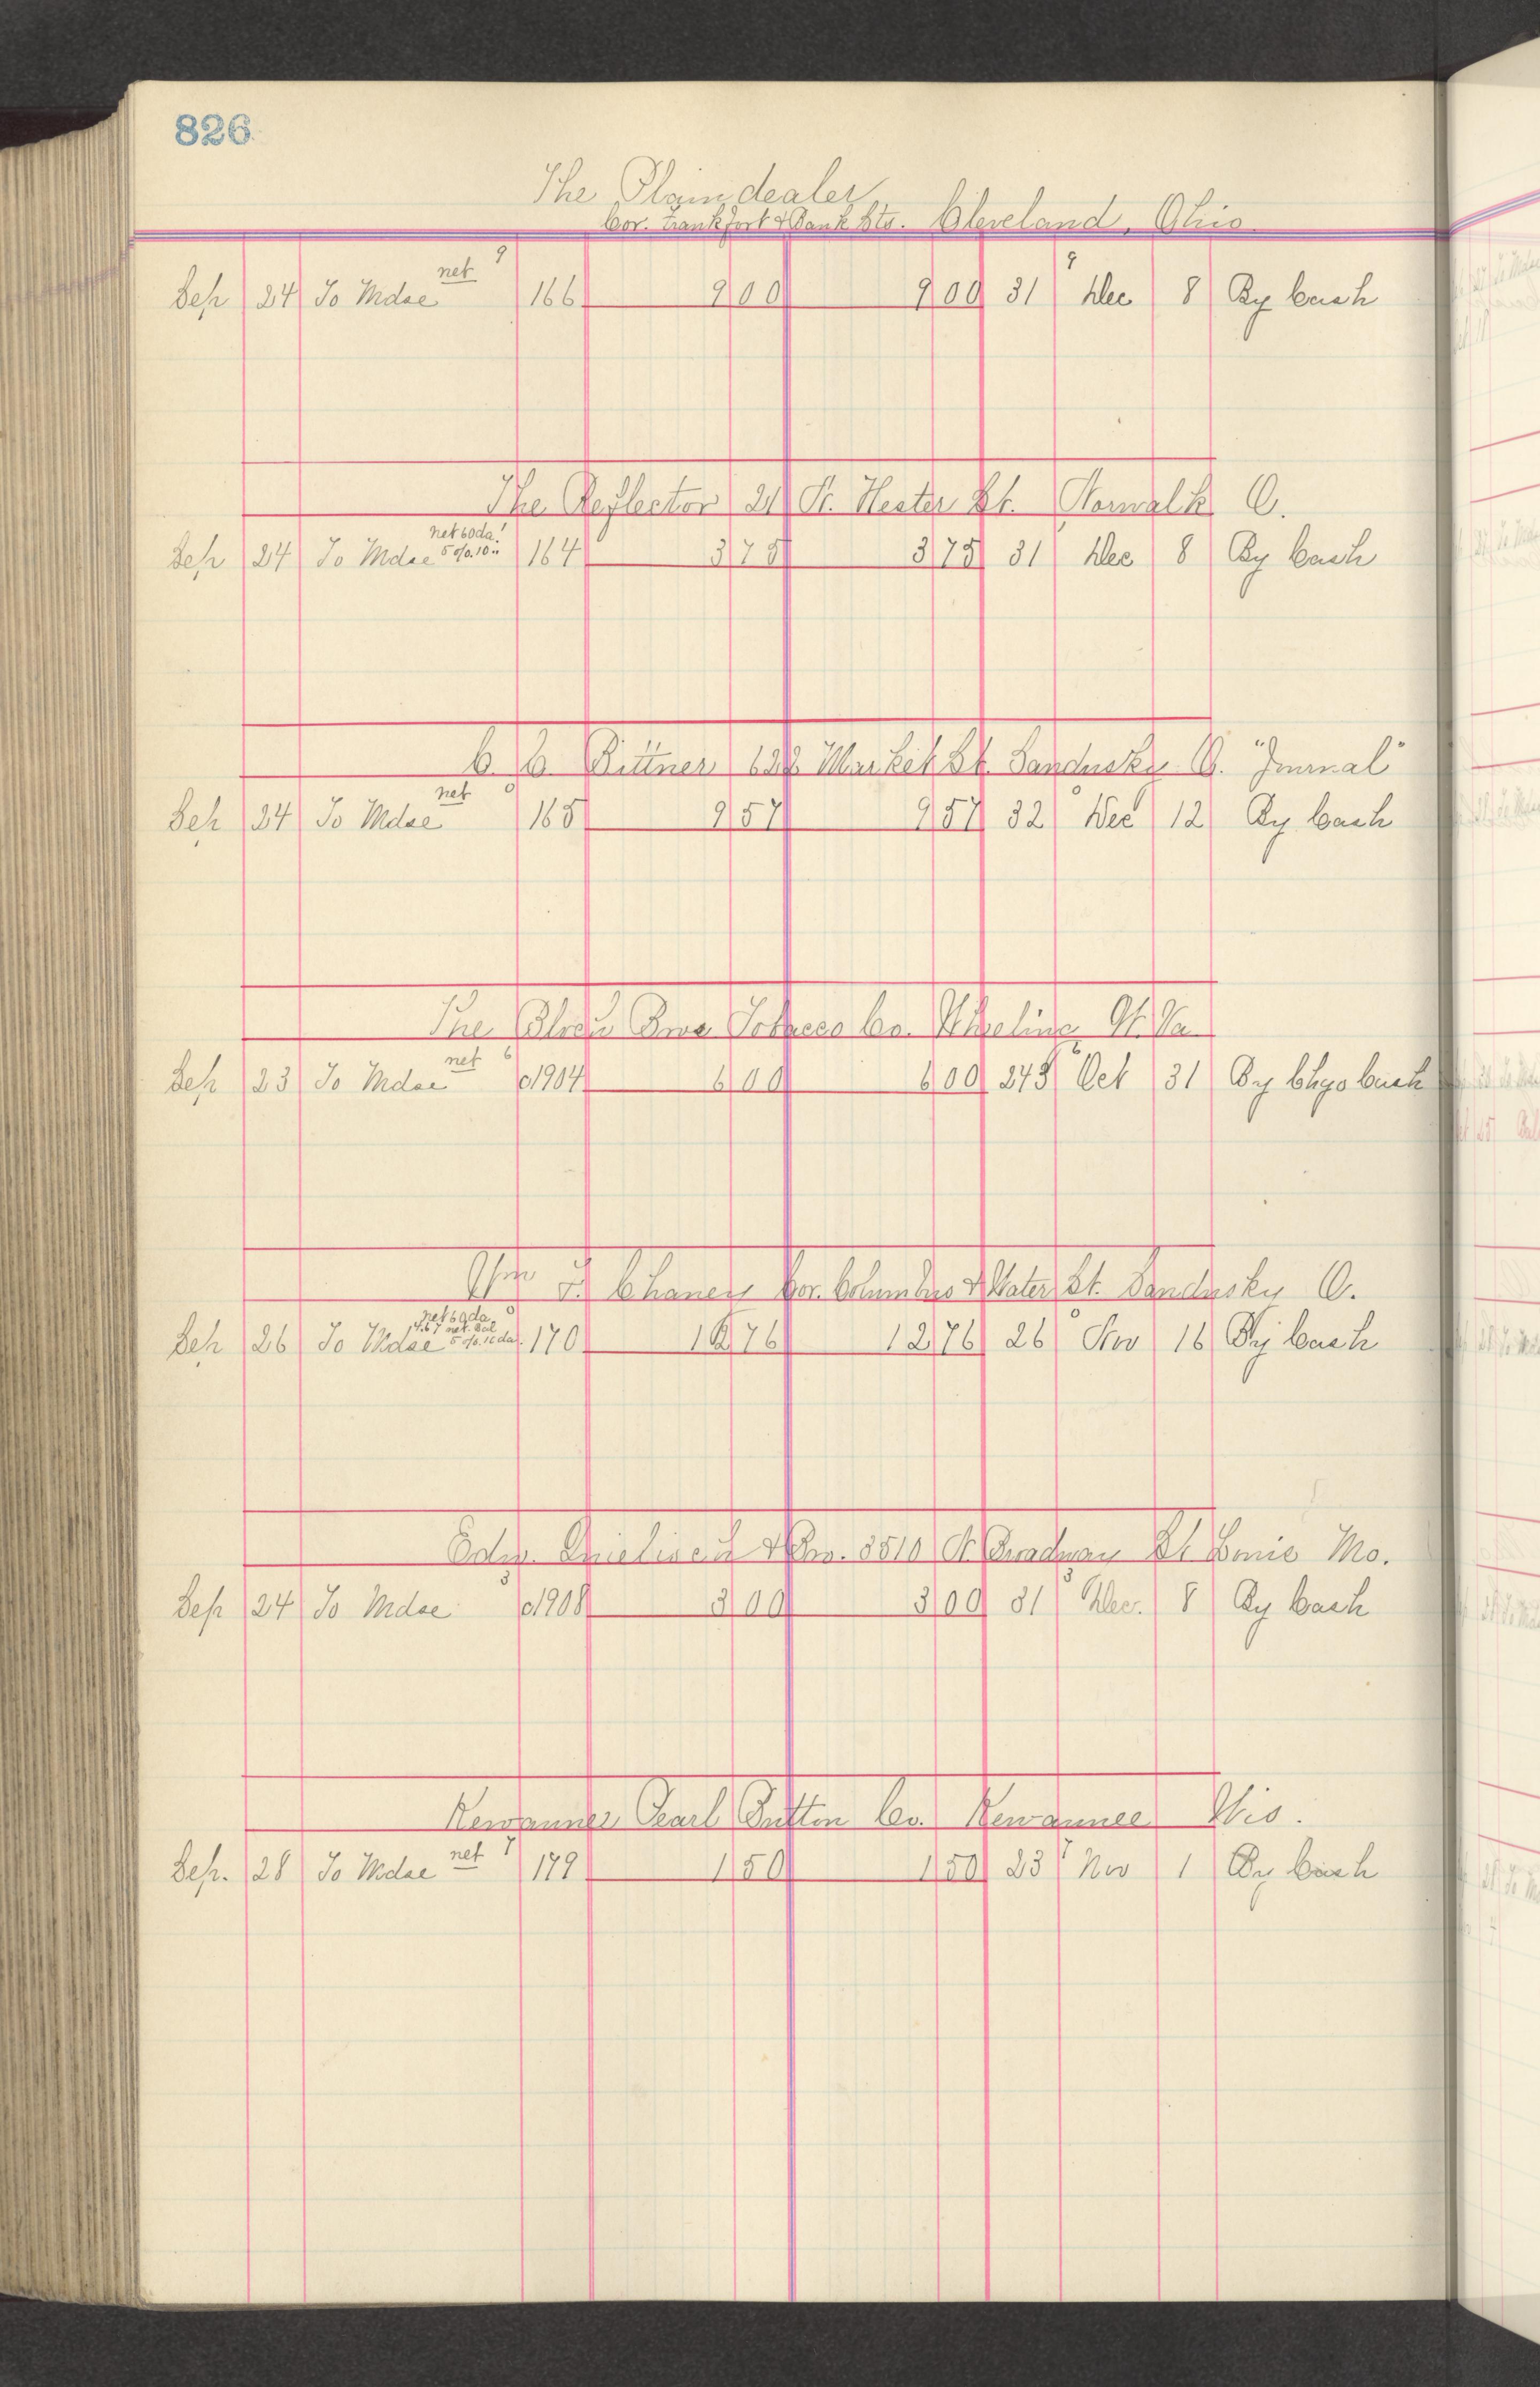 826
The Plaindealer
Cor. Frankfort & Bank Sts. Cleveland, Ohio
Sep 24 To Mdse net 9 166 9 00 9 00 31 9 Dec 8 By Cash
The Reflector 21 N. Hester St. Norwalk O.
net 60 da.
Sep 24 To Mdse 5%. 10 " 164 3 75 3 75 31 Dec 8 By Cash
C. C. Bittner 632 Market St. Sandusky O. "Journal"
Sep 24 To Mdse net 165 9 57 9 57 32 Dec 12 By Cash
The Bloch Bros Tobacco Co. Wheeling W. Va.
Sep 23 To Mdse net 6 c1904 6 00 6 00 245 6 Oct 31 By Chgo Cash
Wm F. Chaney Cor. Columbus & Water St. Sandusky O.
net 60 da.
4.67 net. Bal
Sep 26 To Mdse 5%. 10 da. 170 12 76 12 76 26 Nov 16 By Cash
Edw. & Bro. 3510 N. Broadway St Louis Mo.
Sep 24 To Mdse 3 c1908 3 00 3 00 31 3 Dec. 8 By Cash
Kewaunee Pearl Button Co. Kewaunee Wis.
Sep. 28 To Mdse net 7 179 1 50 1 50 23 7 Nov 1 By Cash